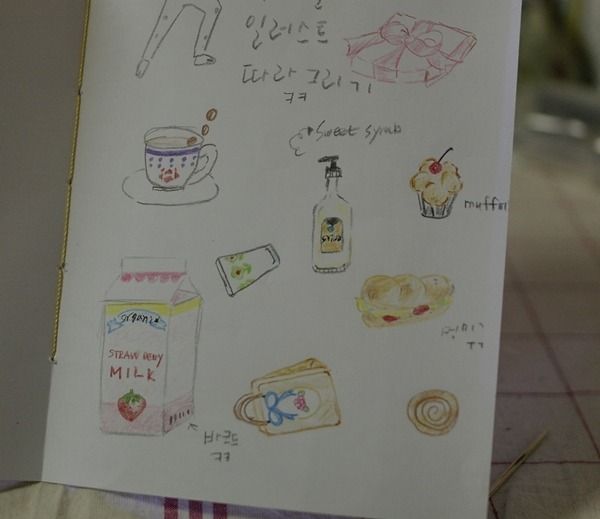 일러스트
따라그리기
ㅋㅋ
sweet syrub
muffin
ORGANIC
STRAWBERY
MILK
바코드
ㅋㅋ